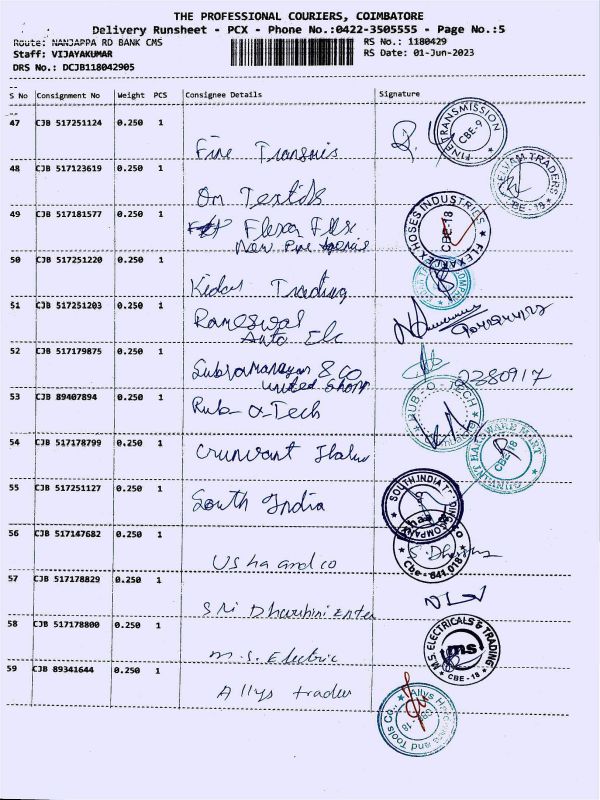 THE PROFESSIONAL COURIERS, COIMBATORE
Delivery Runsheet - PCX - Phone No.:0422-3505555 - Page No.:5
Route: NANJAPPA RD BANK CMS RS No.: 1180429
Staff: VIJAYAKUMAR RS Date: 01-Jun-2023
DRS No.: DCJB118042905
S No Consignment No Weight PCS Consignee Details Signature
47 CJB 517251124 0.250 1
Fine Transmis
FINE TRANSMISSION CBE-9
48 CJB 517123619 0.250 1
On Textils
TRADERS CBE-18
49 CJB 517181577 0.250 1
Flexer Flex
New Fire Agencies
FLEXAFLEX HOSES INDUSTRIES CBE-18
50 CJB 517251220 0.250 1
Trading
51 CJB 517251203 0.250 1
Rameswar
Auto Elc
52 CJB 517179875 0.250 1
Subramaniyan & CO
United Shop
2380917
53 CJB 89407894 0.250 1
Rub-O-Tech
RUB-O-TECH
54 CJB 517178799 0.250 1
HARDWARE MART CBE-18
55 CJB 517251127 0.250 1
South India
SOUTH INDIA TRADING COMPANY
56 CJB 517147682 0.250 1
Usha and co
Cbe - 641 018
57 CJB 517178829 0.250 1
Sri Dharshini Enter
58 CJB 517178800 0.250 1
M.S. Electric
M.S. ELECTRICALS & TRADING ms CBE-18
59 CJB 89341644 0.250 1
Allys trader
Allys Hardware and Tools Co.,